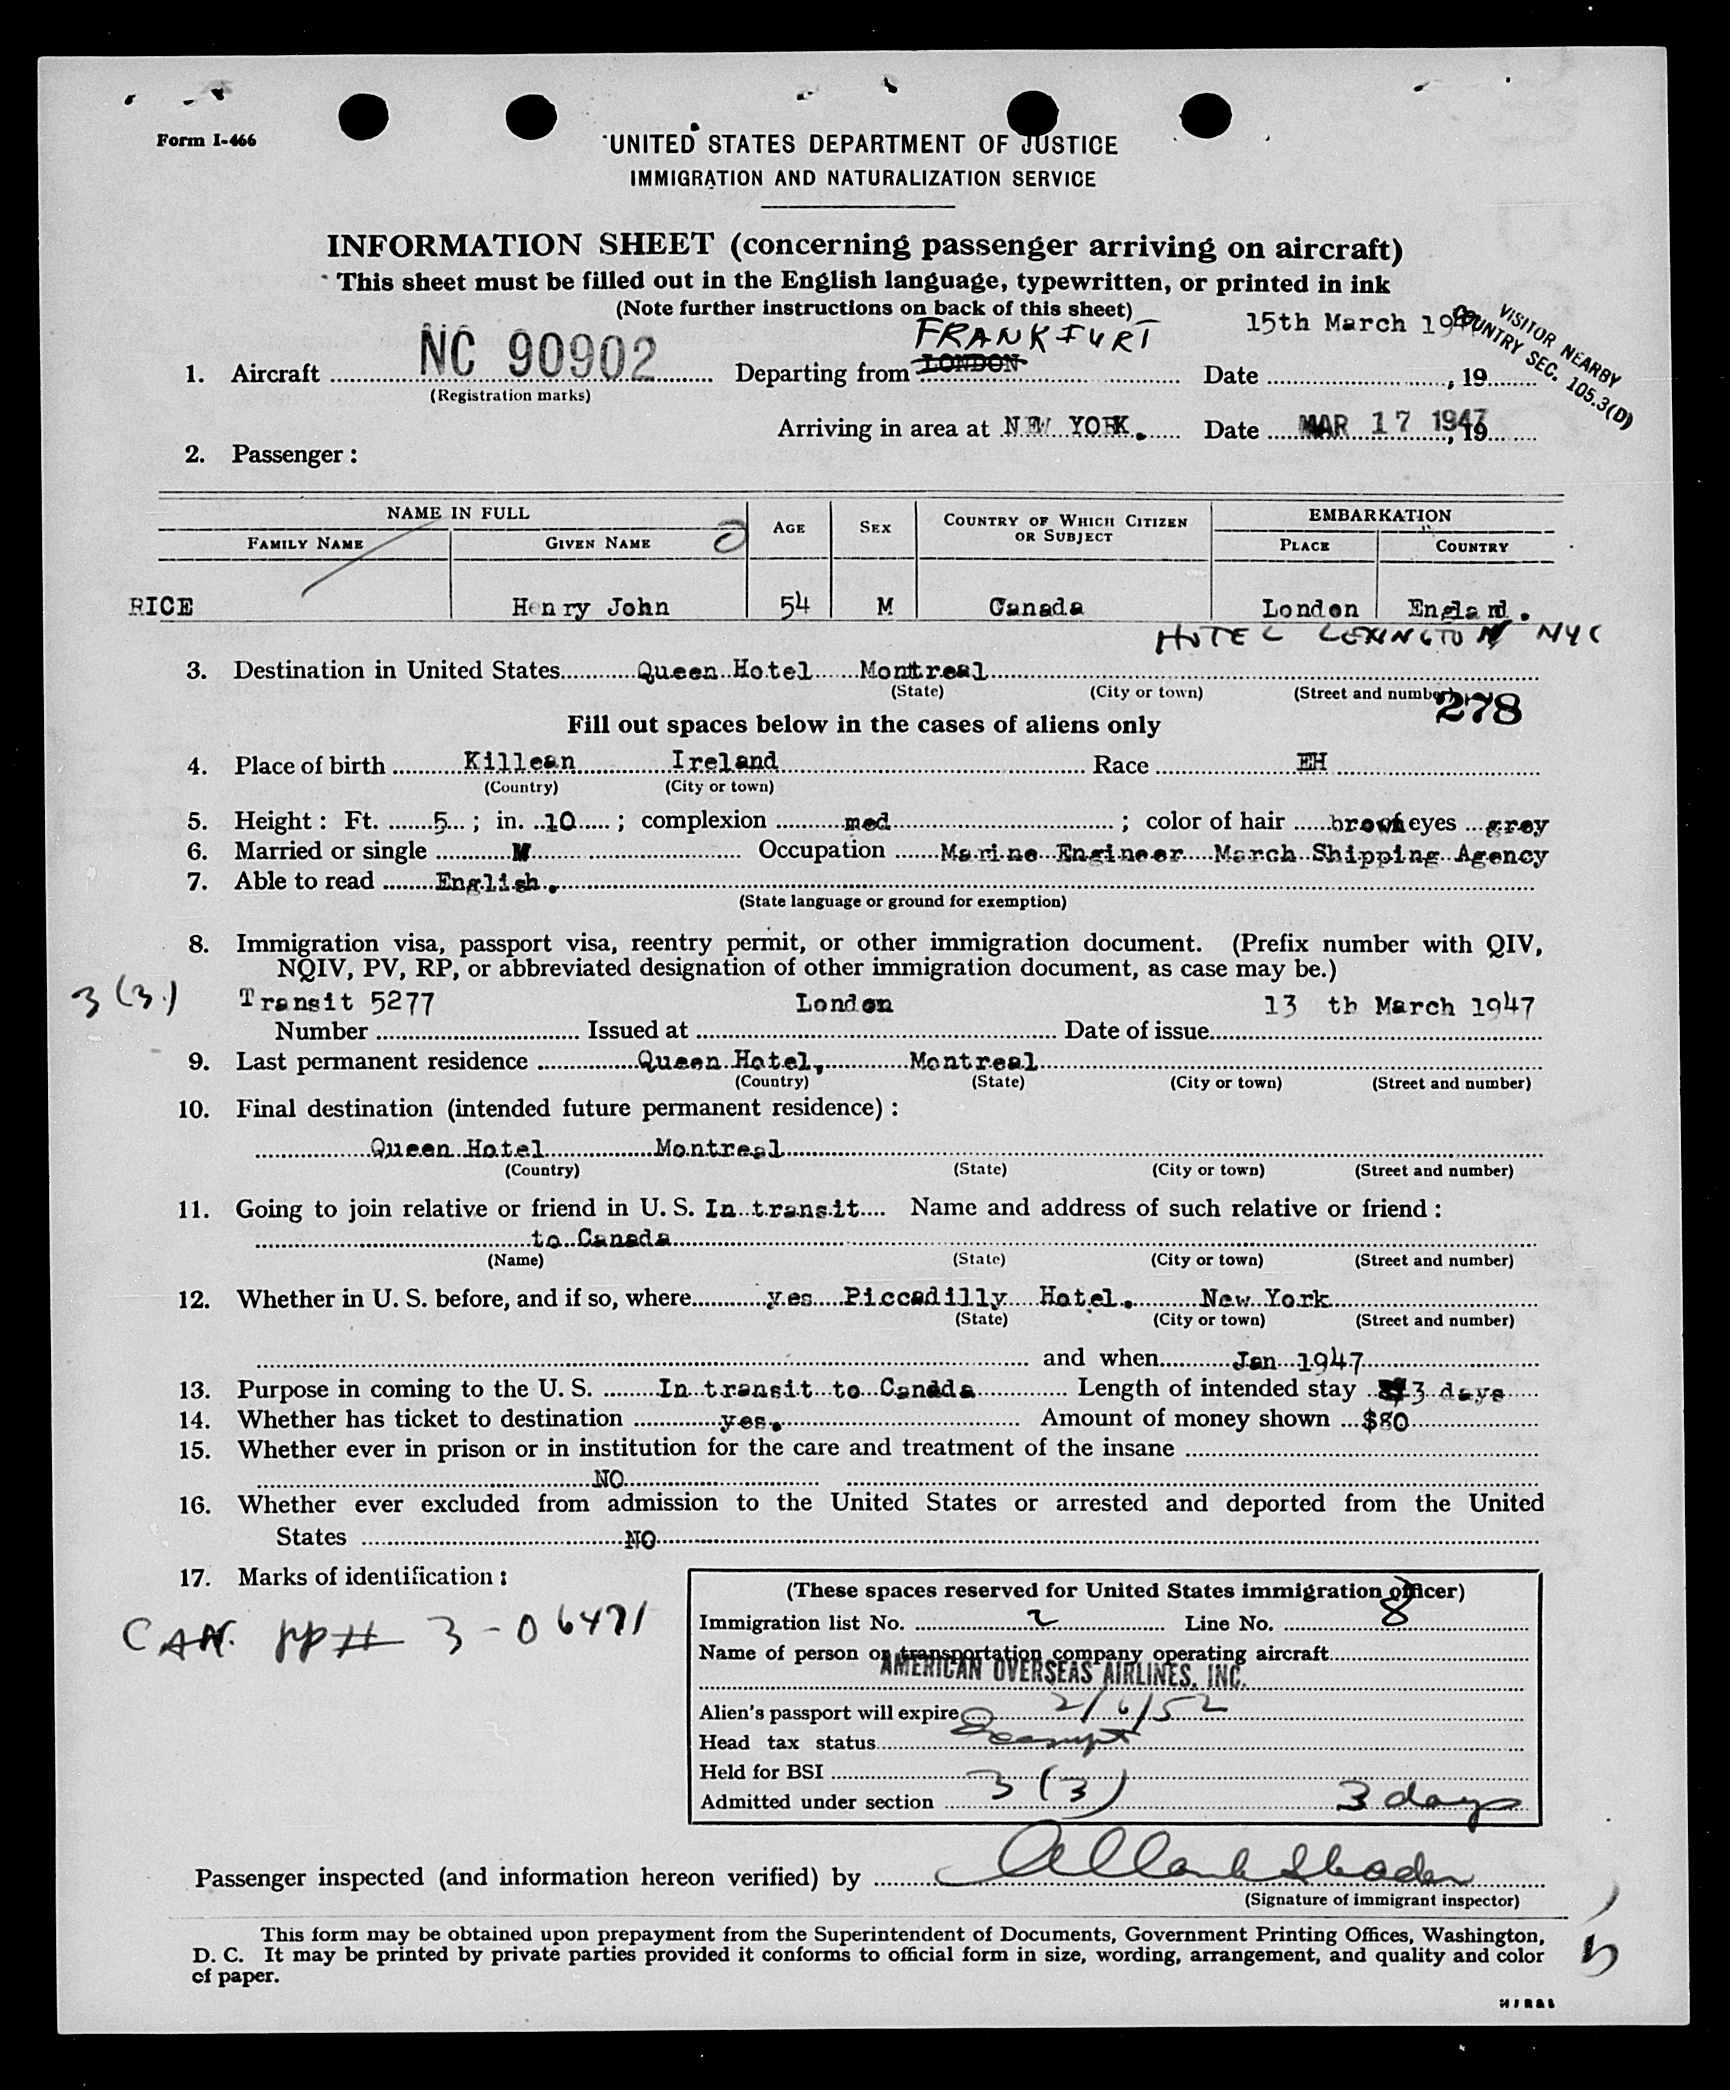 Form I-466
UNITED STATES DEPARTMENT OF JUSTICE
IMMIGRATION AND NATURALIZATION SERVICE
INFORMATION SHEET (concerning passenger arriving on aircraft)
This sheet must be filled out in the English language, typewritten, or printed in ink
(Note further instructions on back of this sheet)
VISITOR NEARBY
COUNTRY SEC. 105.3(D)
FRANKFURT
15th March
1. Aircraft NC 90902 Departing from LONDON Date , 19
(Registration marks)
Arriving in area at NEW YORK. Date MAR 17 1947, 19
2. Passenger :
NAME IN FULL AGE SEX COUNTRY OF WHICH CITIZEN OR SUBJECT EMBARKATION
FAMILY NAME GIVEN NAME PLACE COUNTRY
RICE Henry John 54 M Canada London England.
HOTEL LEXINGTON NYC
3. Destination in United States Queen Hotel Montreal
(State) (City or town) (Street and number)
278
Fill out spaces below in the cases of aliens only
4. Place of birth Killean Ireland Race EH
(Country) (City or town)
5. Height : Ft. 5 ; in. 10 ; complexion med ; color of hair brown eyes grey
6. Married or single M Occupation Marine Engineer March Shipping Agency
7. Able to read English.
(State language or ground for exemption)
8. Immigration visa, passport visa, reentry permit, or other immigration document. (Prefix number with QIV,
NQIV, PV, RP, or abbreviated designation of other immigration document, as case may be.)
3 (3) Transit 5277 London 13 th March 1947
Number Issued at Date of issue
9. Last permanent residence Queen Hotel, Montreal
(Country) (State) (City or town) (Street and number)
10. Final destination (intended future permanent residence) :
Queen Hotel Montreal
(Country) (State) (City or town) (Street and number)
11. Going to join relative or friend in U. S. In transit Name and address of such relative or friend :
to Canada
(Name) (State) (City or town) (Street and number)
12. Whether in U. S. before, and if so, where yes Piccadilly Hotel. New York
(State) (City or town) (Street and number)
and when Jan 1947
13. Purpose in coming to the U. S. In transit to Canada Length of intended stay 3 days
14. Whether has ticket to destination yes. Amount of money shown $80
15. Whether ever in prison or in institution for the care and treatment of the insane
NO
16. Whether ever excluded from admission to the United States or arrested and deported from the United
States NO
17. Marks of identification :
CAN. pp# 3-06471
(These spaces reserved for United States immigration officer)
Immigration list No. 2 Line No. 8
Name of person or transportation company operating aircraft
AMERICAN OVERSEAS AIRLINES, INC.
Alien's passport will expire 2/6/52
Head tax status Exempt
Held for BSI
Admitted under section 3 (3) 3 days
Passenger inspected (and information hereon verified) by
(Signature of immigrant inspector)
This form may be obtained upon prepayment from the Superintendent of Documents, Government Printing Offices, Washington,
D. C. It may be printed by private parties provided it conforms to official form in size, wording, arrangement, and quality and color
of paper.